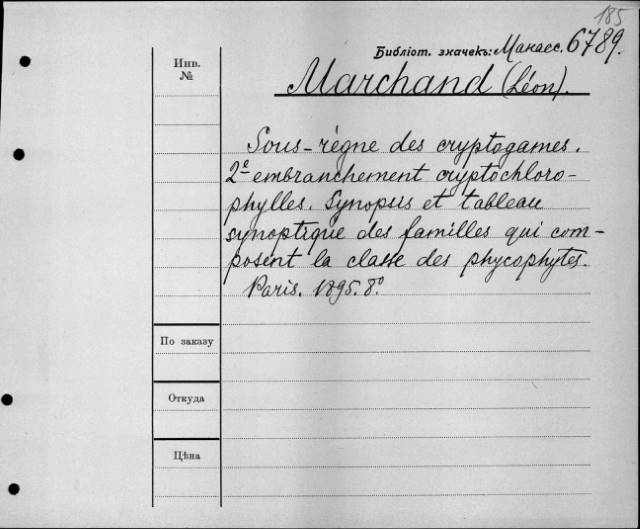 185
Библіот. значекъ: Манасс. 6789.
Инв.
№
Marchand (Léon).
Sous-règne des cryptogames.
2e embranchement cryptochloro-
phylles. Synopsis et tableau
synoptique des familles qui com-
posent la classe des phycophytes.
Paris. 1895. 8º.
По заказу
Откуда
Цѣна